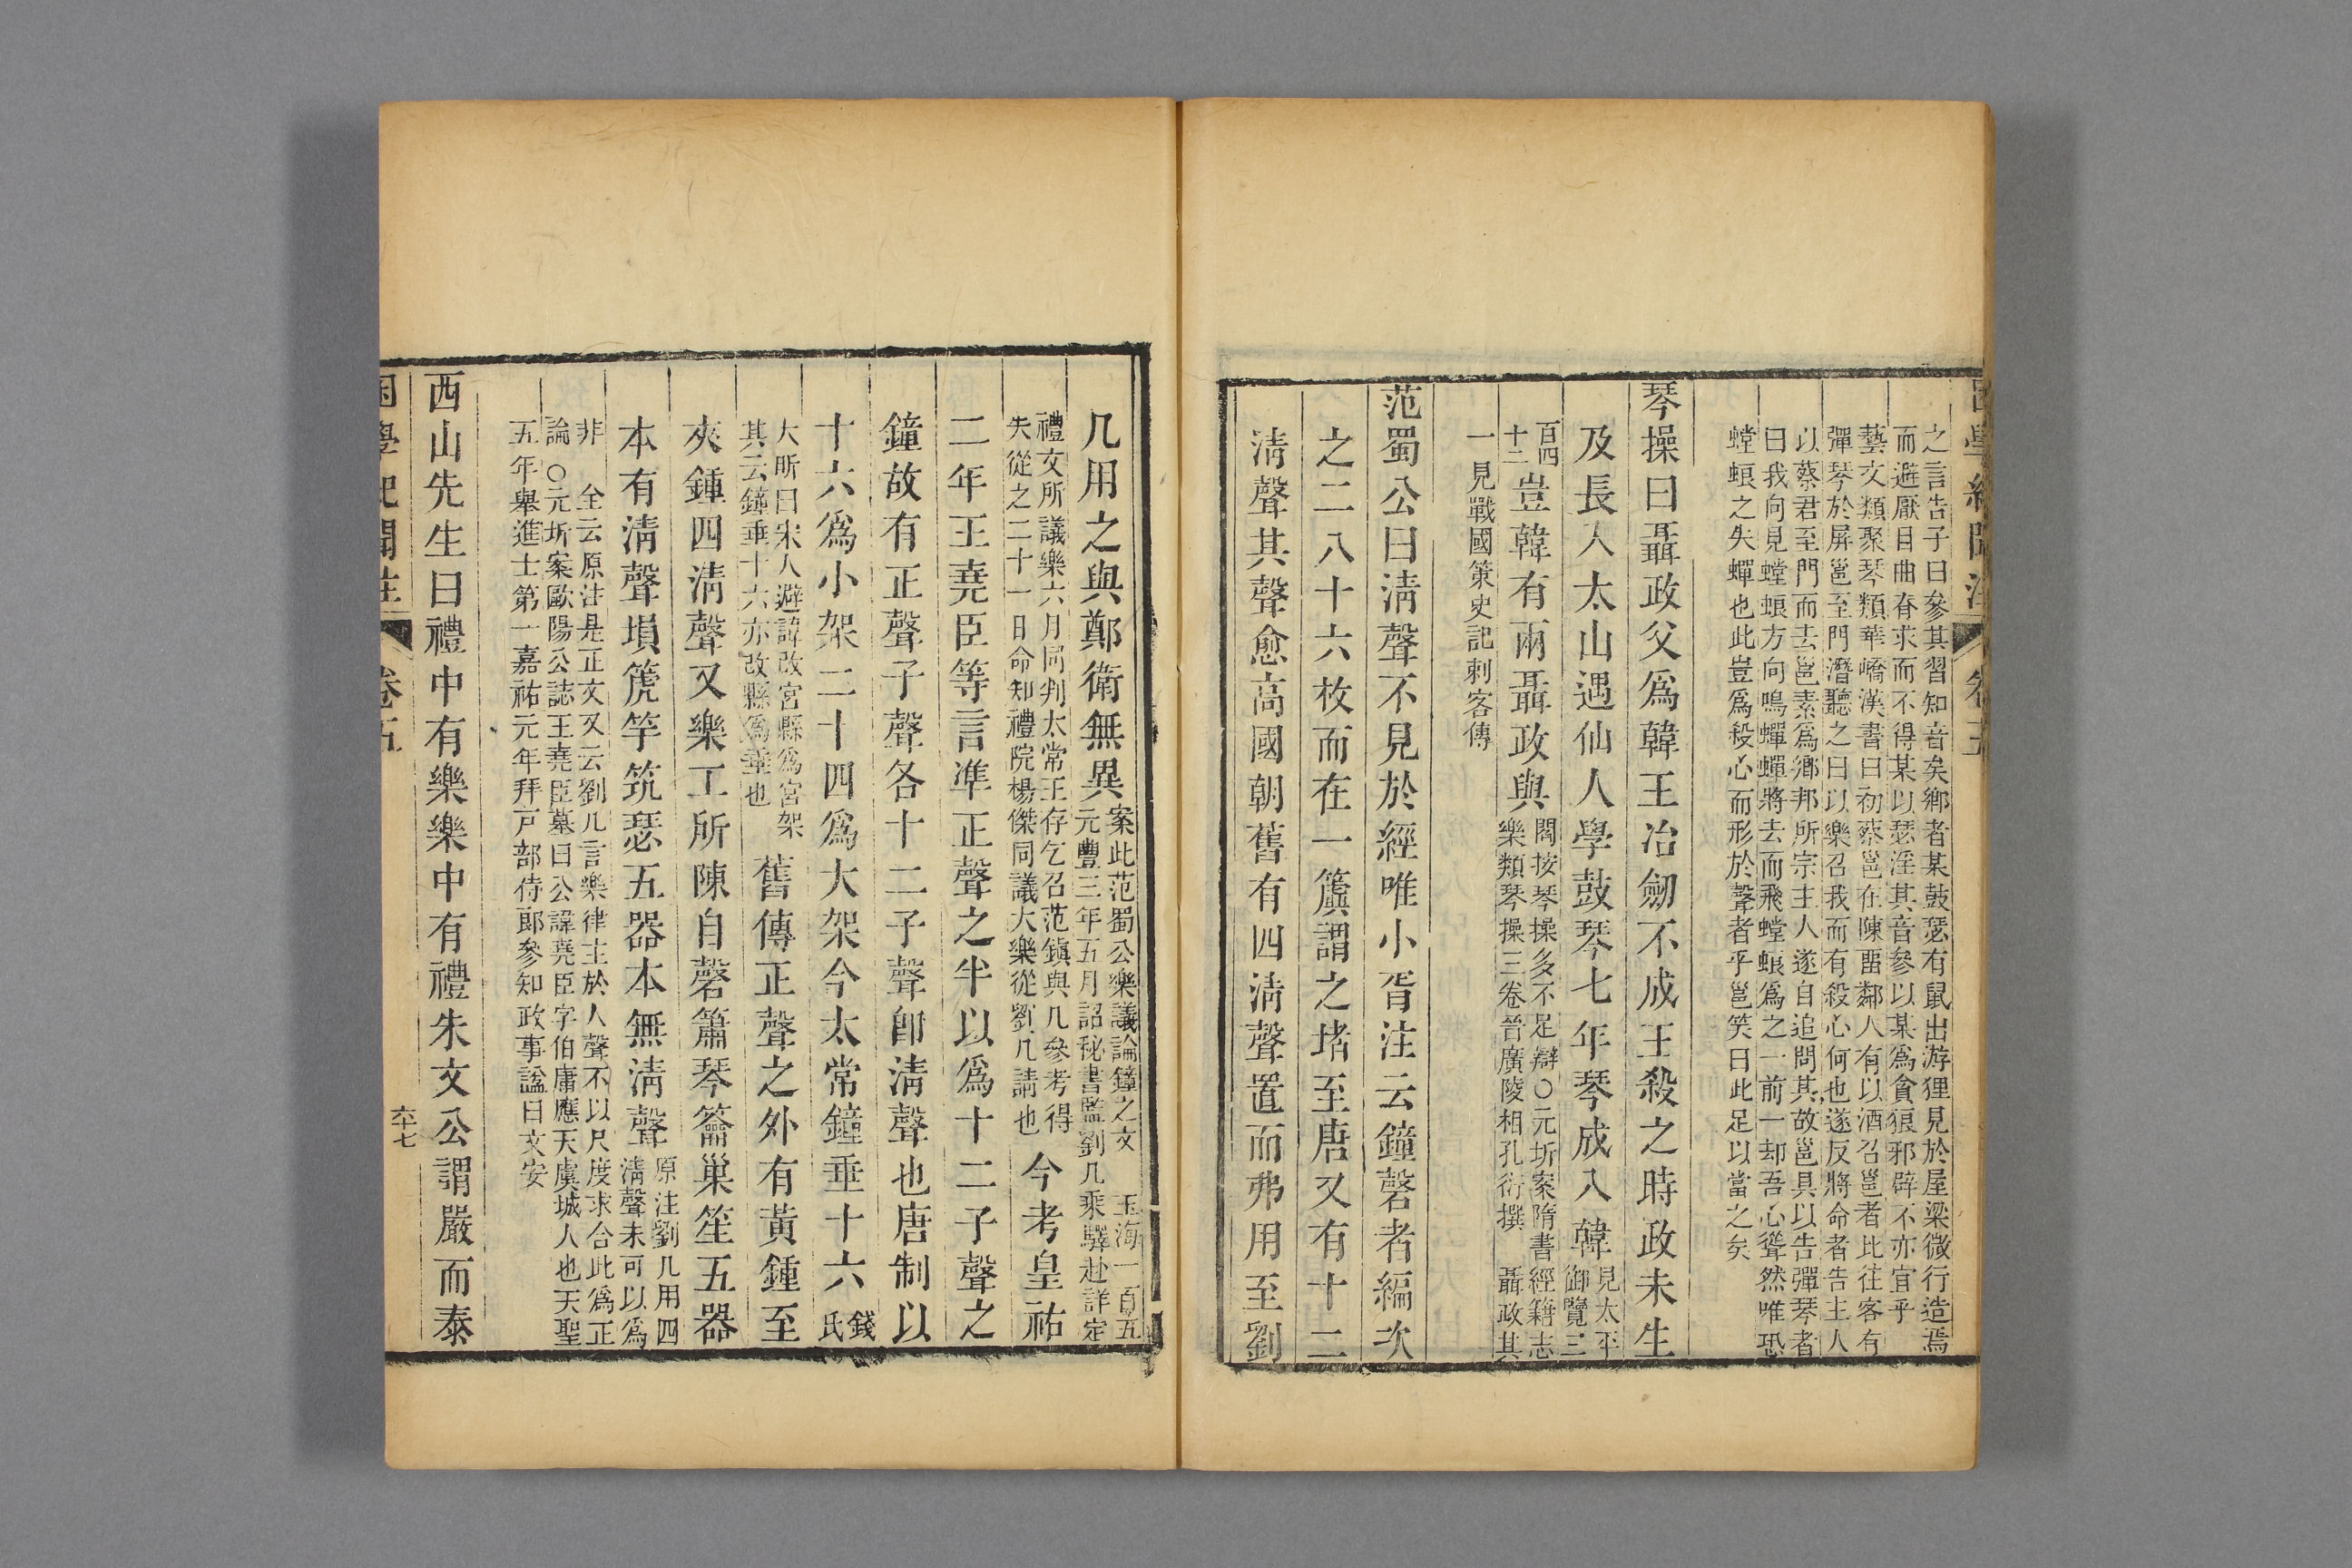 之言告子曰參其習知音矣鄉者某鼓瑟有鼠出游狸見於屋梁微行造焉
而避厭目曲脊求而不得某以瑟淫其音參以某爲貪狼邪辟不亦宜乎
藝文類聚琴類華嶠漢書曰初蔡邕在陳畱鄰人有以酒召邕者比往客有
彈琴於屏邕至門潛聽之曰以樂召我而有殺心何也遂反將命者告主人
以蔡君至門而去邕素爲鄉邦所宗主人遂自追問其故邕具以告彈琴者
曰我向見螳蜋方向鳴蟬蟬將去而飛螳蜋爲之一前一却吾心聳然唯恐
螳蜋之失蟬也此豈爲殺心而形於聲者乎邕笑曰此足以當之矣
琴操曰聶政父爲韓王冶劒不成王殺之時政未生
及長入太山遇仙人學鼓琴七年琴成入韓見太平御覽三
百四十二豈韓有兩聶政與閻按琴操多不足辯○元圻案隋書經籍志樂類琴操三卷晉廣陵相孔衍撰 聶政其
一見戰國策史記刺客傳
范蜀公曰淸聲不見於經唯小胥注云鐘磬者編次
之二八十六枚而在一簴謂之堵至唐又有十二
淸聲其聲愈高國朝舊有四淸聲置而弗用至劉
几用之與鄭衛無異案此范蜀公樂議論鐘之文 玉海一百五元豐三年五月詔秘書監劉几乘驛赴詳定
禮文所議樂六月同判太常王存乞召范鎮與几參考得失從之二十一日命知禮院楊傑同議大樂從劉几請也今考皇祐
二年王堯臣等言準正聲之半以爲十二子聲之
鐘故有正聲子聲各十二子聲卽淸聲也唐制以
十六爲小架二十四爲大架今太常鐘垂十六錢氏
大昕曰宋人避諱改宮縣爲宮架其云鐘垂十六亦改縣爲垂也舊傳正聲之外有黃鍾至
夾鍾四淸聲又樂工所陳自磬簫琴籥巢笙五器
本有淸聲塤篪竽筑瑟五器本無淸聲原注劉几用四淸聲未可以爲
非 全云原注是正文又云劉几言樂律主於人聲不以尺度求合此爲正論 ○元圻案歐陽公誌王堯臣墓曰公諱堯臣字伯庸應天虞城人也天聖
五年舉進士第一嘉祐元年拜戸部侍郎參知政事諡曰文安
西山先生曰禮中有樂樂中有禮朱文公謂嚴而泰
卷五
六十七